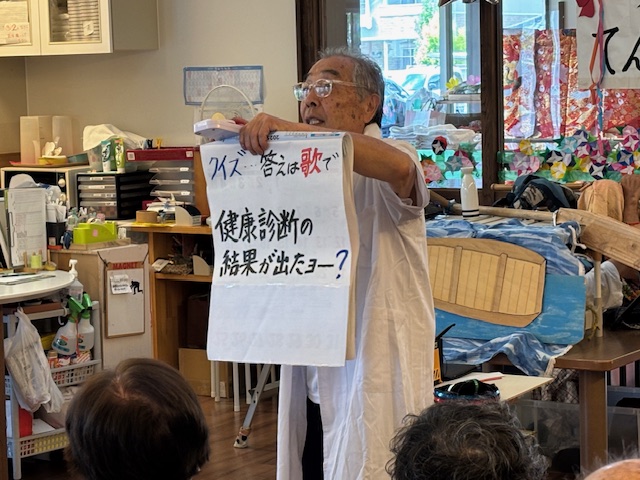 クイズ…答えは歌で
健康診断の
結果が出たヨー?
てん